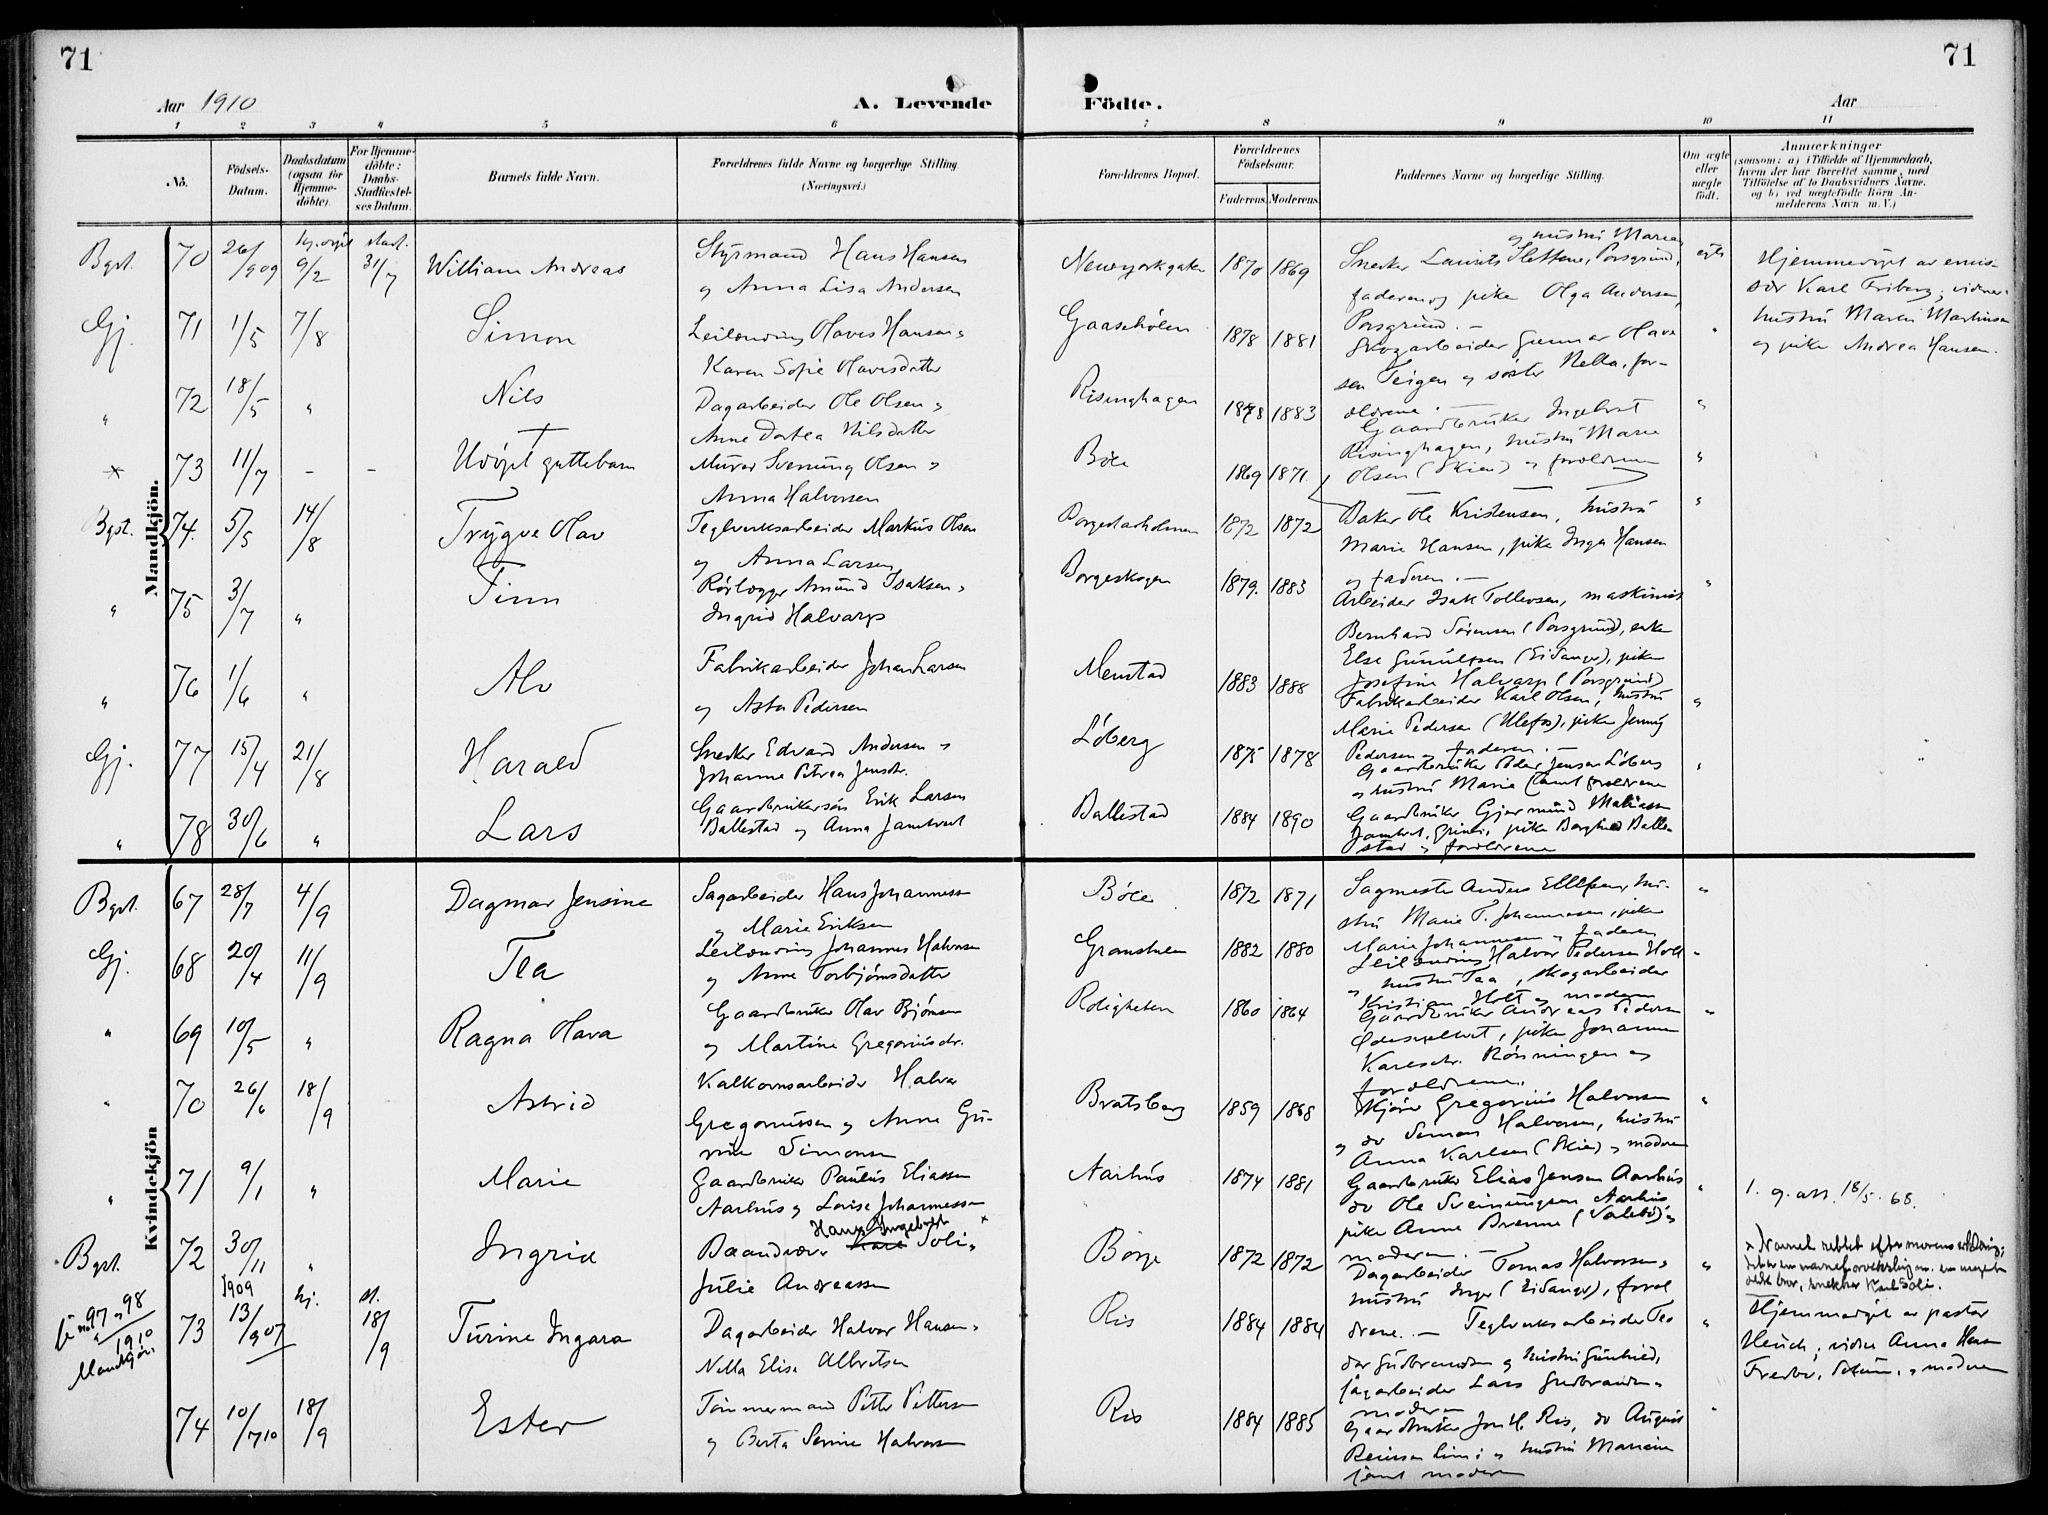 71
71
Aar 1910
A. Levende
Födte.
Aar
1 2 3 4 5 6 7 8 9 10 11
No.
Födsels-Datum.
Daabsdatum (ogsaa for Hjemme-döbte).
For Hjemme-döbte: Daabs-Stadfæstel-ses Datum.
Barnets fulde Navn.
Forældrenes fulde Navne og borgerlige Stilling.
(Næringsvei.)
Forældrenes Bopæl.
Forældrenes Födselsaar.
Faderens. Moderens.
Faddernes Navne og borgerlige Stilling.
Om ægte eller uægte födt.
Anmærkninger
(saasom: a) i Tilfælde af Hjemmedaab, hvem der har forrettet samme, med Tilföielse af to Daabsvidners Navne. og b) ved uægtefödte Börn An-melderens Navn m. V.)
Mandkjön.
Bgst. 70 26/ 909 9/2 stadf. 31/7 William Andreas
Styrmand Hans Hansen
og Anna Lisa Andersen
Newyorkgaten 1870 1869
og hustru Maren
Snekker Laurits Slettene, Porsgrund,
faderen og pike Olga Andersen,
Porsgrund. —
ægte
Hjemmedøpt av emis-
sær Karl Friberg; vidner:
hustru Maren Martinsen
og pike Andrea Hansen.
Gj. 71 1/5 7/8 Simon
Leilænding Olaves Hansen og
Karen Sofie Olavesdatter
Gaasehølen 1878 1881 "
Skogarbeider Gunnar Olav-
sen Teigen og søster Helka, for-
ældrene. —
" 72 18/5 " Nils
Dagarbeider Ole Olsen og
Anne Dortea Nilsdatter
Risinghagen 1878 1883 "
Gaardbruker Ingebret
Risinghagen, hustru Marie
Olsen (Skien) og forældrene
* 73 11/7 - - Udøpt guttebarn
Murer Svenung Olsen og
Anna Halvorsen
Böle 1869 1871 "
Bgst. 74. 5/5 14/8 Trygve Olav
Teglverksarbeider Markus Olsen
og Anna Larsen
Borgestadholmen 1872 1872 "
Baker Ole Kristensen, hustru
Marie Hansen, pike Inga Hansen
og faderen. —
" 75 3/7 " Finn
Rørlægger Amund Isaksen og
Ingrid Halvarp
Borgeskogen 1879. 1883 "
Arbeider Isak Tollevsen, maskinist
Bernhard Sørensen (Porsgrund), enke
Else Gunulfsen (Eidanger), pike
Josefine Halvarp (Porsgrund)
" 76 1/6 " Alv
Fabrikarbeider Johan Larsen
og Asta Pedersen
Menstad 1883 1888 "
Fabrikarbeider Karl Olsen, hustru
Marie Pedersen (Ulefos), pike Jenny
Pedersen og faderen. —
Gj. 77 15/4 21/8 Harald
Snekker Edvard Andersen og
Johanne Petrea Jensdr.
Löberg 1875 1878 "
Gaardbruker Peder Jensen Löberg
og hustru Marie samt forældrene
" 78 30/6 " Lars
Gaardbrukersøn Erik Larsen
Ballestad og Anna Jamtvet
Ballestad 1884 1890
Gaardbruker Gjermund Mathiasen
Jamtvet, Grini, pike Borghild Balle-
stad og forældrene
Kvindekjön
Bgst. 67 28/7 4/9 Dagmar Jensine
Sagarbeider Hans Johannessen
og Marie Eriksen
Böle 1872 1871 "
Sagmester Anders Ellefsen, hu-
stru Marie T. Johannesen, pike
Marie Johannesen og faderen
Gj. 68 20/4 11/9 Tea
Leilænding Johannes Halvorsen
og Anne Torbjørnsdatter
Granstulen 1882 1880 "
Leilænding Halvor Pedersen Holt
og hustru Tea, skogarbeider
Kristian Holt og moderen
" 69 10/5 " Ragna Olava
Gaardbruker Olav Bjørnsen
og Martine Gregoriusdr.
Roligheten 1860 1864 "
Gaardbruker Andreas Pedersen
Ødesneltvet, pike Johanne
Karesdr. Rønningen og
forældrene.
" 70 26/6 18/9 Astrid
Kalkovnsarbeider Halvor
Gregoriussen og Anne Gu-
rine Simonsen
Bratsberg 1859 1868 "
Kjører Gregorius Halvorsen
og do Simon Halvorsen, hustru
Anna Karlsen (Skien) og moderen
" 71 9/1 " Marie
Gaardbruker Paulus Eliassen
Aarhus og Lovise Johannessen
Aarhus 1874 1881 "
Gaardbruker Elias Jensen Aarhus
do Ole Sveinungsen Aarhus,
pike Anne Brenne (Valebø) og
moderen. —
1. g. att. 18/5. 68.
Bgst. 72 30/11 1909 " Ingrid
Hans Ingebret x
Baandværer Karl Soli og
Julie Andreassen
Børge 1872 1872 "
Dagarbeider Tomas Halvorsen og
hustru Inger (Eidanger), foræl
drene. —
x Navnet rettet efter morens erklæring;
det er en navneforveksling m. en
bror, snekker Karl Soli.
se no 97 og 98
1910
Mandkjøn
73 13/ 907 hj. st. 18/9 Turine Ingara
Dagarbeider Halvor Hansen og
Nella Elise Albretsen
Ris 1884 1884 "
Teglverksarbeider Teo
dor Gudbrandsen og hustru Gunhild,
sagarbeider Lars Gudbrandsen og
moderen
Hjemmedøpt av pastor
Heuch; vidner Anna Hansen
Fredbo, Solum, og moderen
74 10/7 10 18/9 Ester
Tømmermand Petter Pettersen
og Berta Serine Halvorsen
Ris 1884 1885 "
Gaardbruker Jon H. Ris, do August
Reiersen Limi og hustru Mariane
samt moderen